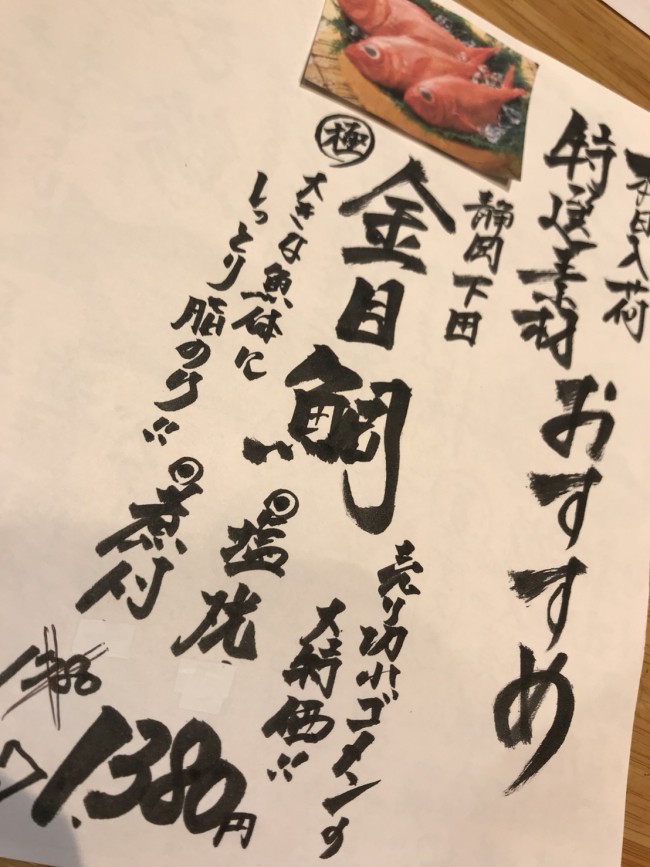 本日入荷
特選素材 おすすめ
静岡下田
極
金目鯛
大きな魚体に
しっとり脂のり!!
売り切れゴメンの
大特価!!
塩焼
煮付
1,380円